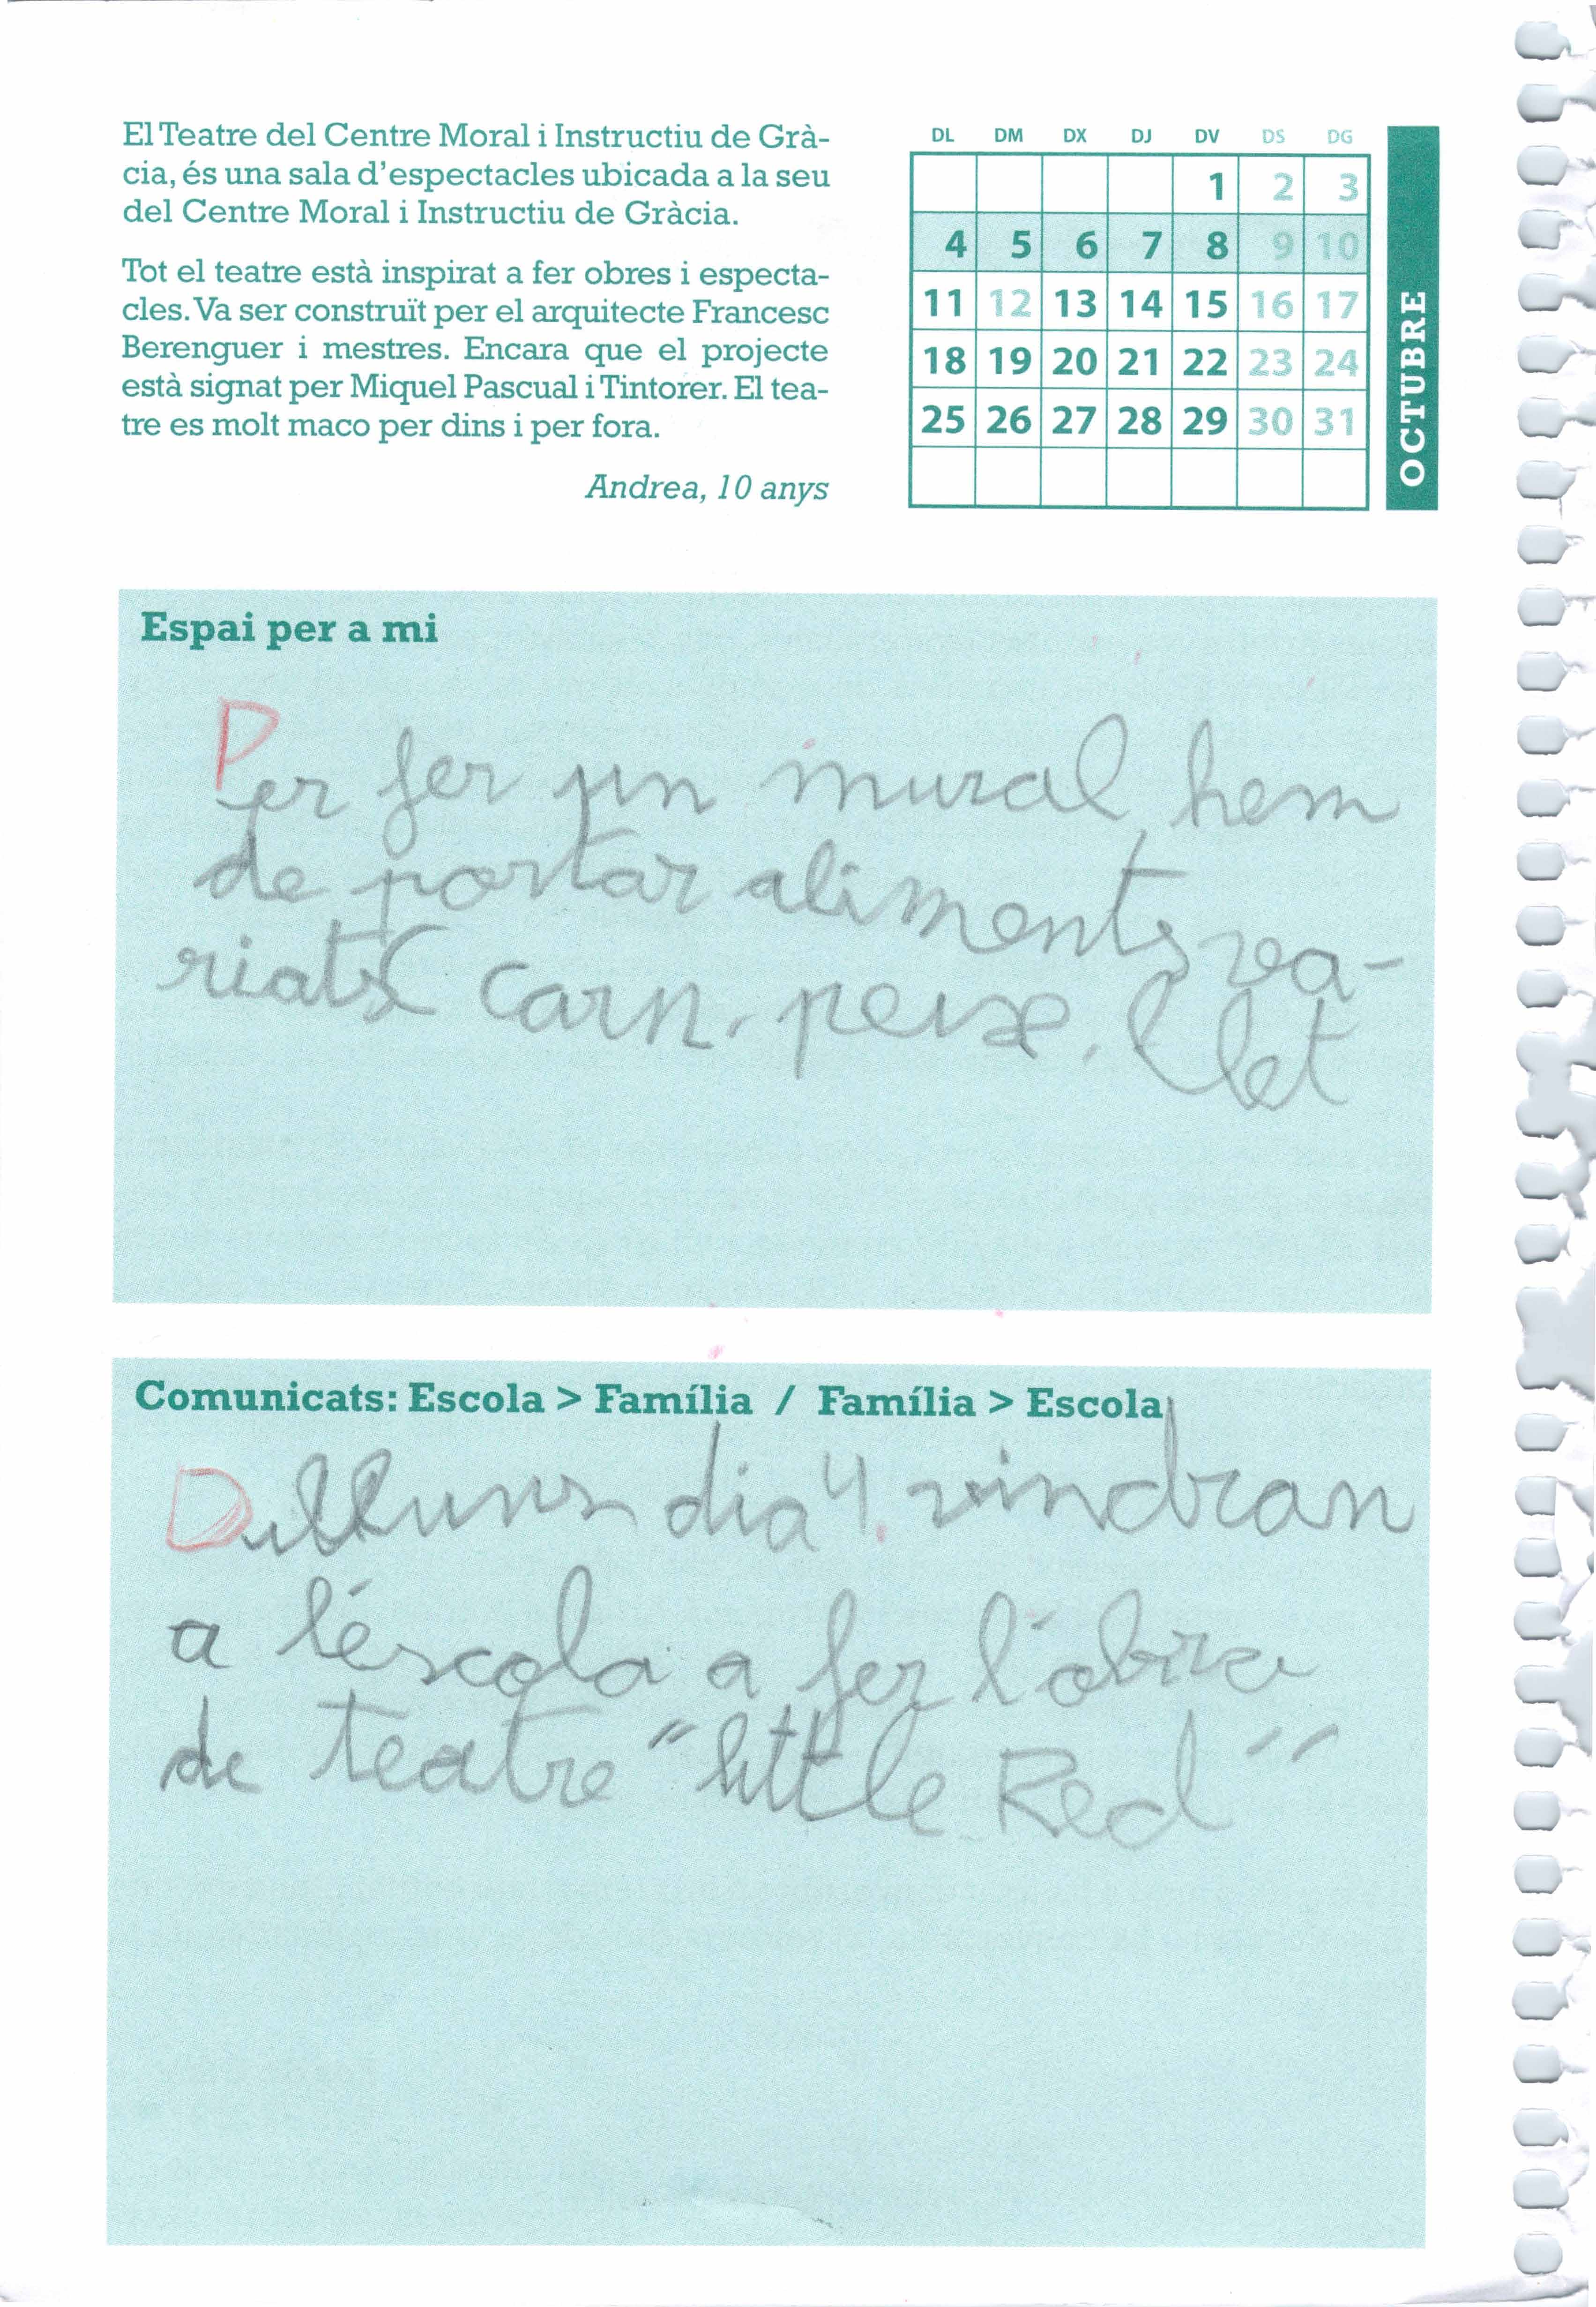 El Teatre del Centre Moral i Instructiu de Grà-
cia, és una sala d'espectacles ubicada a la seu
del Centre Moral i Instructiu de Gràcia.
Tot el teatre està inspirat a fer obres i especta-
cles. Va ser construït per el arquitecte Francesc
Berenguer i mestres. Encara que el projecte
està signat per Miquel Pascual i Tintorer. El tea-
tre es molt maco per dins i per fora.
Andrea, 10 anys
DL DM DX DJ DV DS DG
1 2 3
4 5 6 7 8 9 10
11 12 13 14 15 16 17
18 19 20 21 22 23 24
25 26 27 28 29 30 31
OCTUBRE
Espai per a mi
Per fer un mural, hem
de portar aliments va-
riats( carn, peix, llet
Comunicats: Escola > Família / Família > Escola
Dilluns dia 4, vindran
a l'escola a fer l'obra
de teatre "little Red"